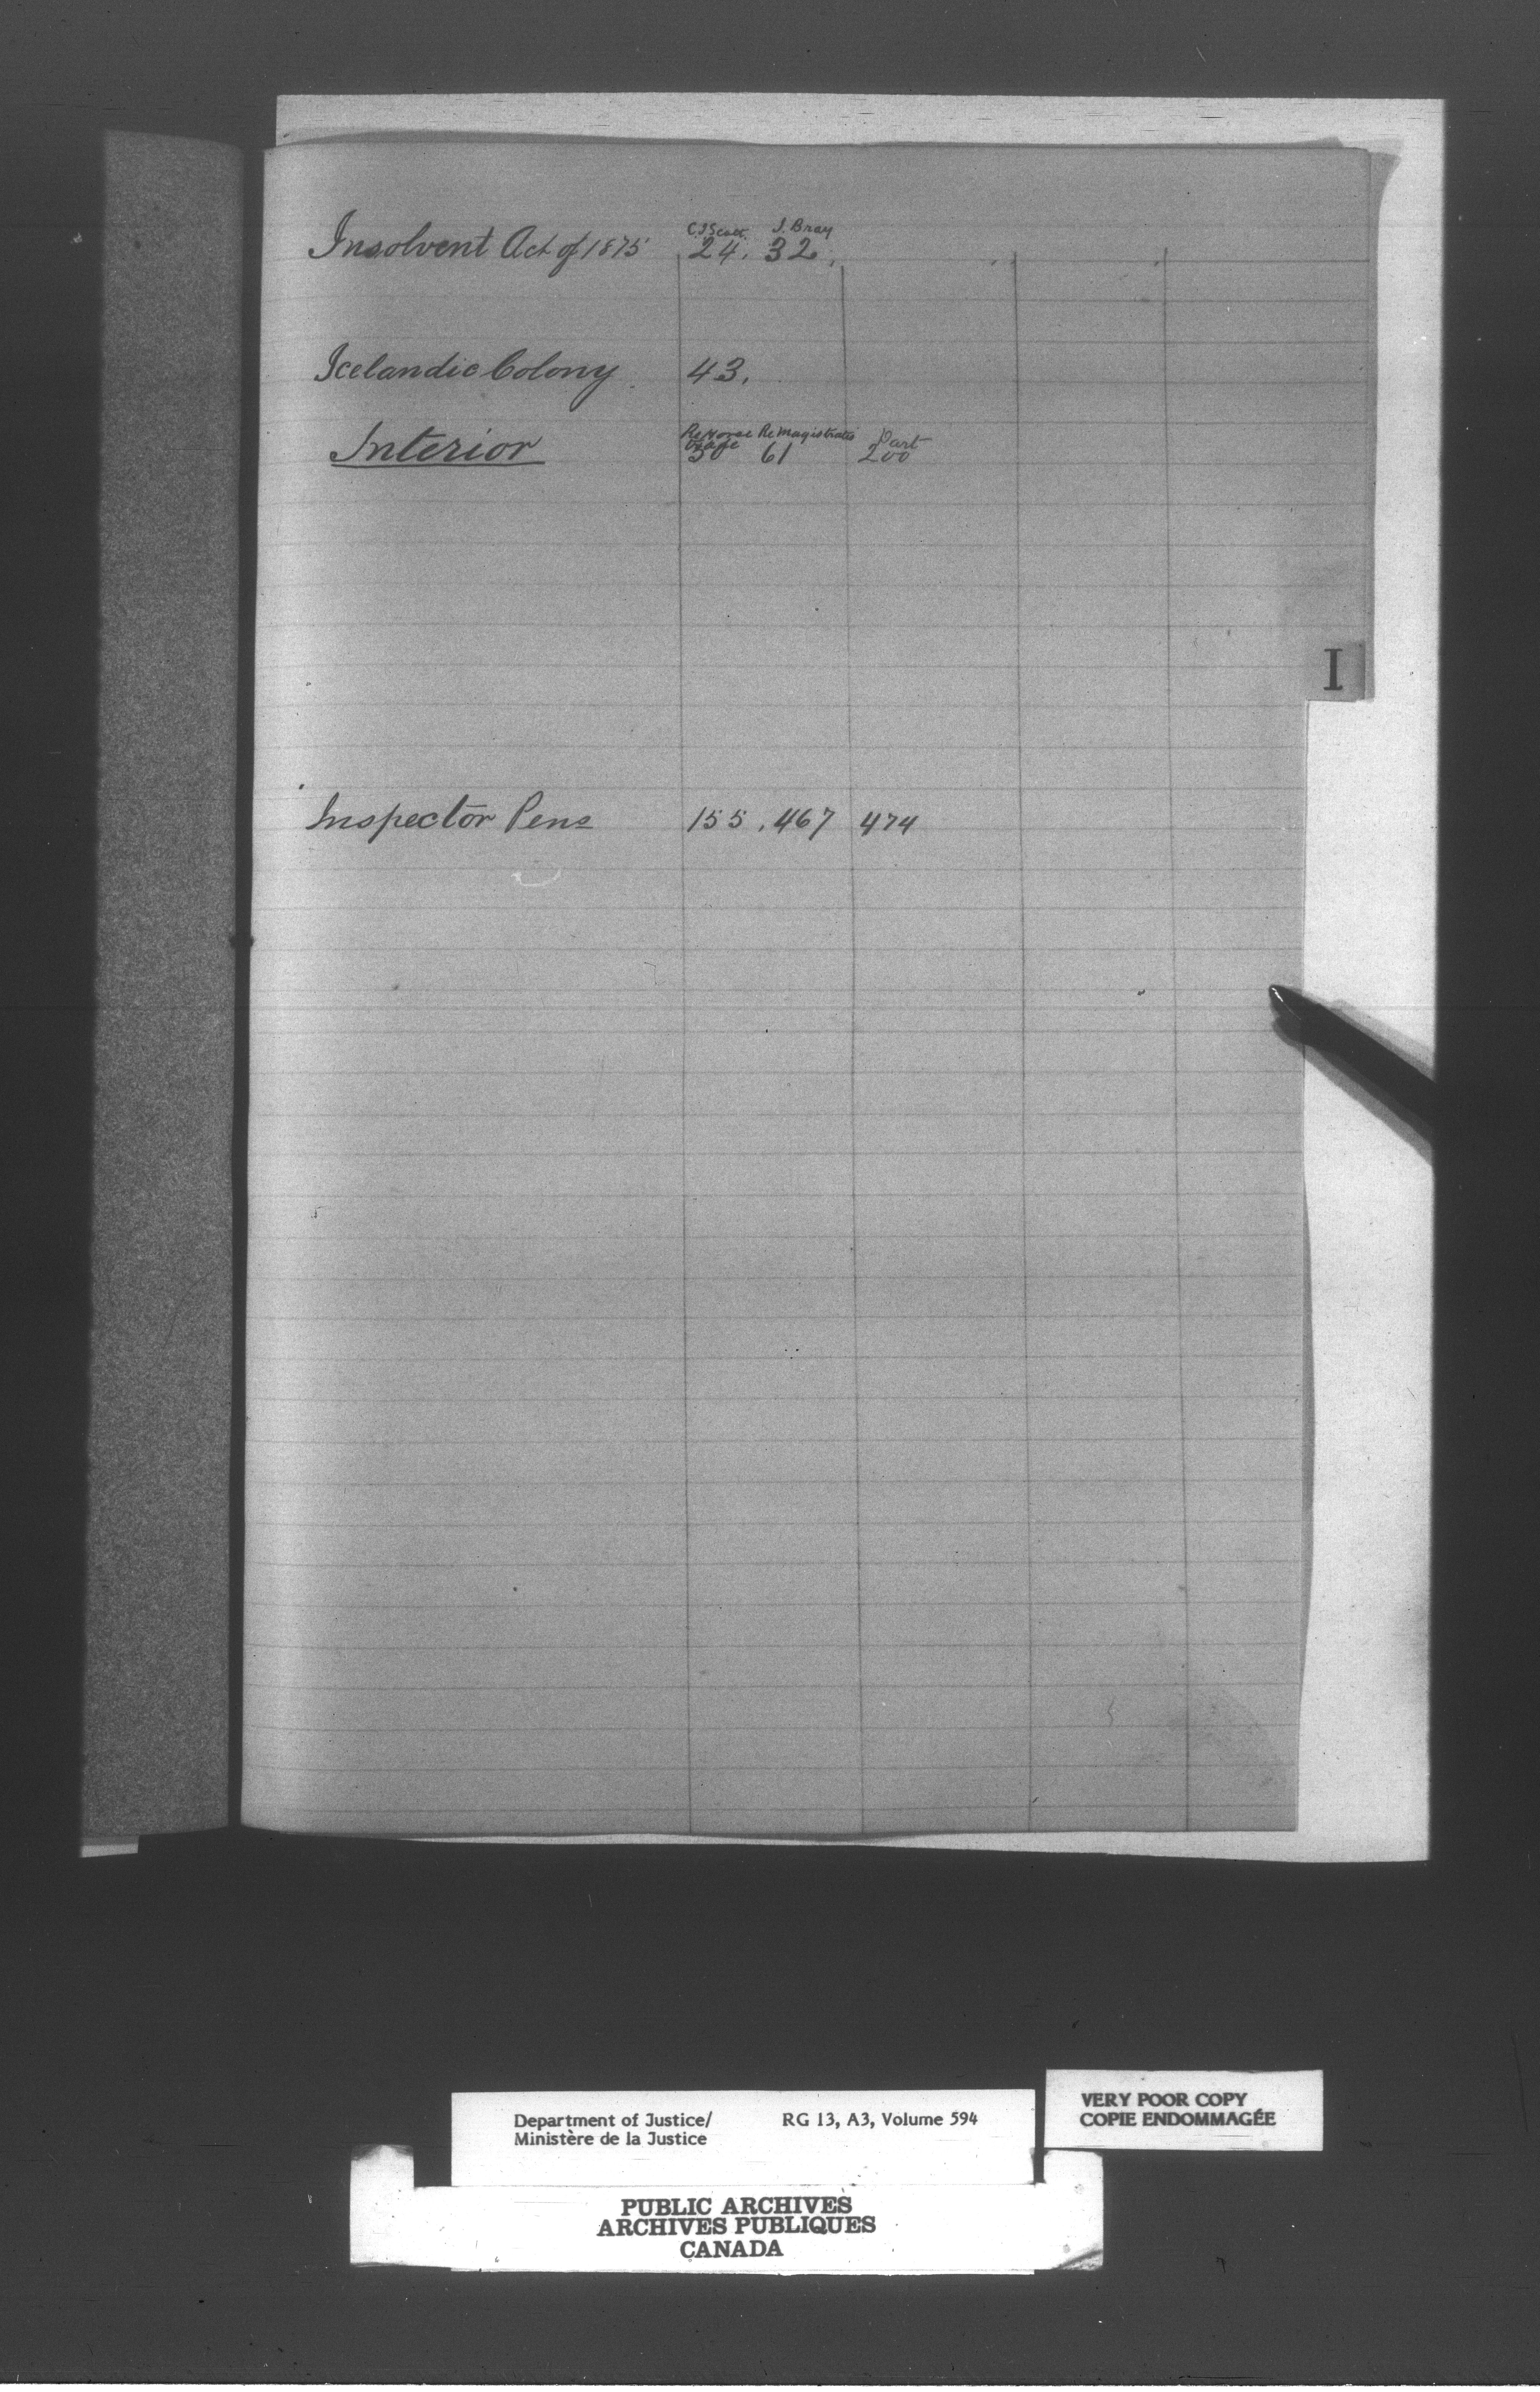 C. J. Scott. J. Bray
Insolvent Act of 1875 24. 32.
Icelandic Colony 43.
Re Horse Re Magistrates Part
Interior 50 61 200
I
Inspector Pens 155. 467 474
Department of Justice/ RG 13, A3, Volume 594
Ministère de la Justice
VERY POOR COPY
COPIE ENDOMMAGÉE
PUBLIC ARCHIVES
ARCHIVES PUBLIQUES
CANADA